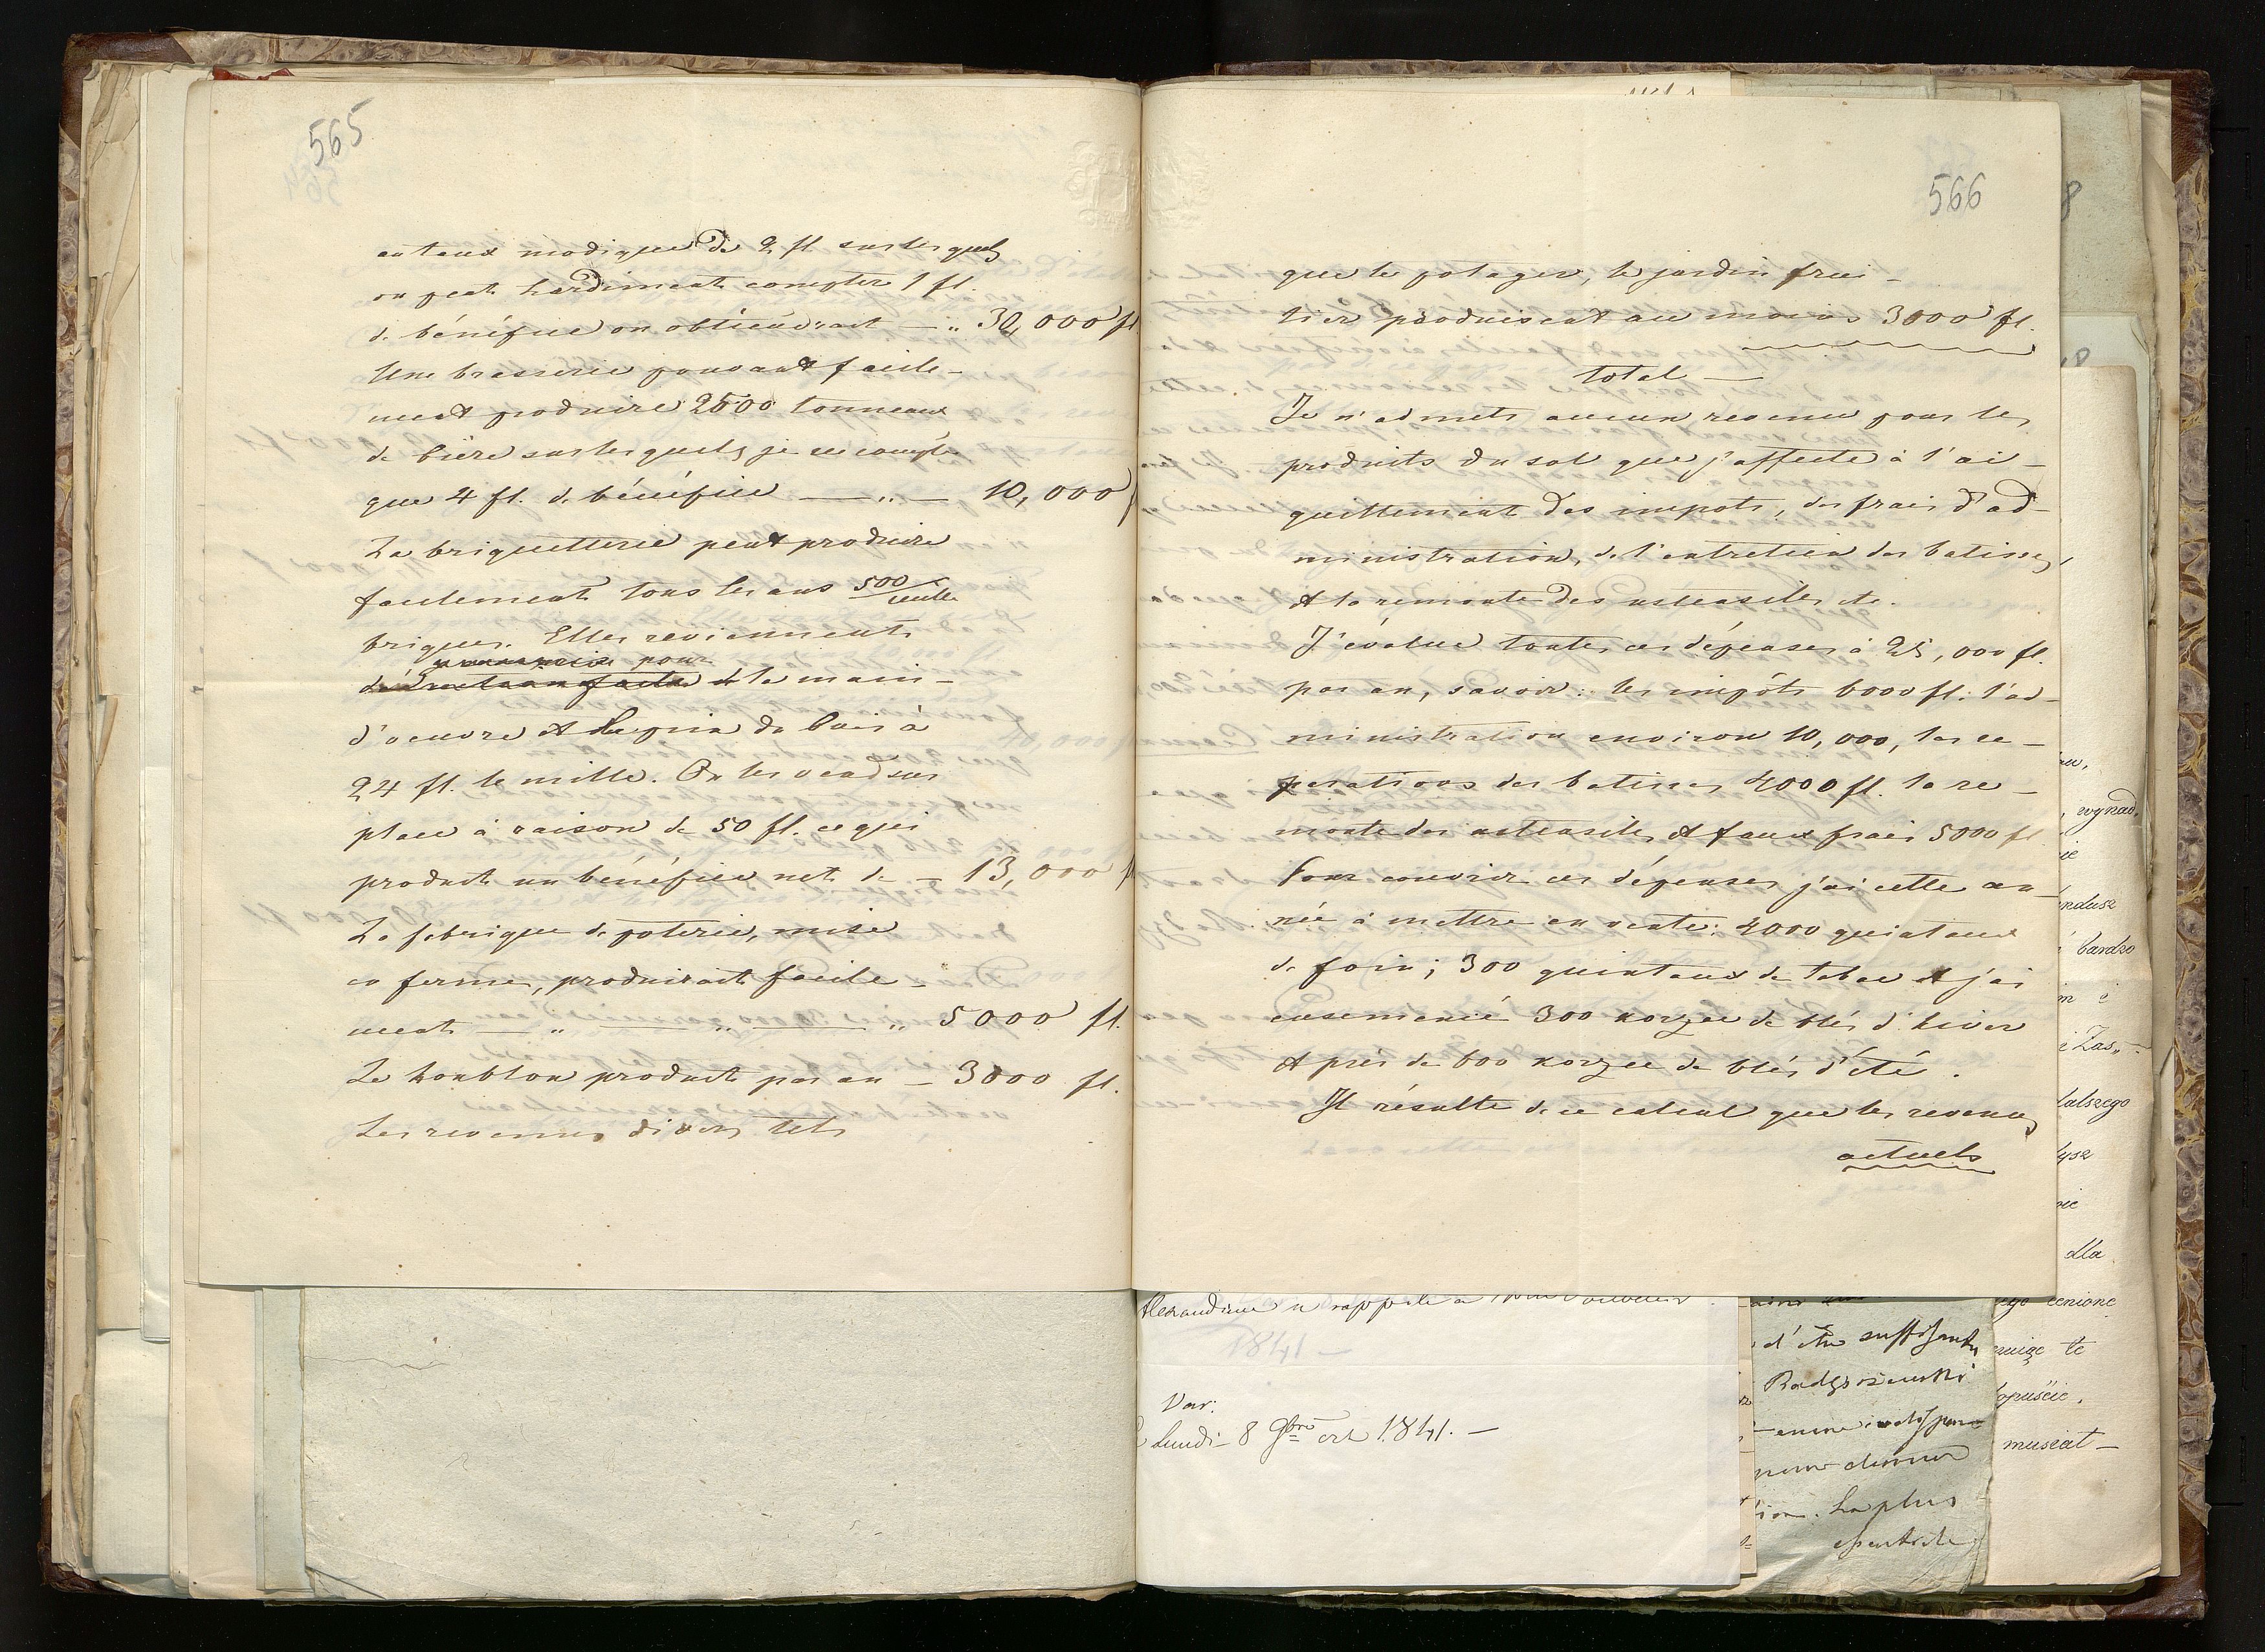 565
au taux modique de 2 fl. sur les quels
on peut hardiment compter 1 fl.
de bénéfice on obtiendrait — „ 30,000 fl
Une brasserie pouvant facile-
ment produire 2500 tonneaux
de bière sur les quels je ne compte
que 4 fl. de bénéfice — „ — 10,000 f
La briquetterie peut produire
facilement tous les ans 500/mille
briques. Elles reviennent
pour
la main-
d'oeuvre et le prix du bois à
24 fl. le mille. On les vend sur
place à raison de 50 fl. ce qui
produit un bénéfice net de — 13,000 f
La fabrique de poterie, mise
en ferme, produirait facile-
ment — „ — „ — „ 5000 fl.
Le houblon produit par an — 3000 fl.
Les revenus divers tels
566
que le potager, le jardin frui-
tier produisent au moins 3000 fl.
total —
Je n'admets aucun revenu pour les
produits du sol que j'affecte à l'ac-
quittement des impots, des frais d'ad-
ministration, de l'entretien des batisses,
et la remonte des ustensiles etc.
J'évalue toutes ces dépenses à 25,000 fl.
par an, savoir: les impôts 6000 fl. l'ad-
ministration environ 10,000, les re-
parations des batisses 4000 fl. la re-
monte des ustensiles et faux frais 5000 fl
Pour couvrir ces dépenses j'ai cette an-
née à mettre en vente: 4000 quintaux
de foin; 300 quintaux de tabac et j'ai
ensemencé 300 korzec de blés d'hiver
et près de 600 korzec de blés d'été.
Il résulte de ce calcul que les revenus
actuels
8
wynad.
bardzo
i Zas„
dalszego
dla
cenione
te
opuście.
musiat —
Var:
Lundi 8 9bre 1841. —
1841
d'être suffisants
Radziszewski
donner
La plus